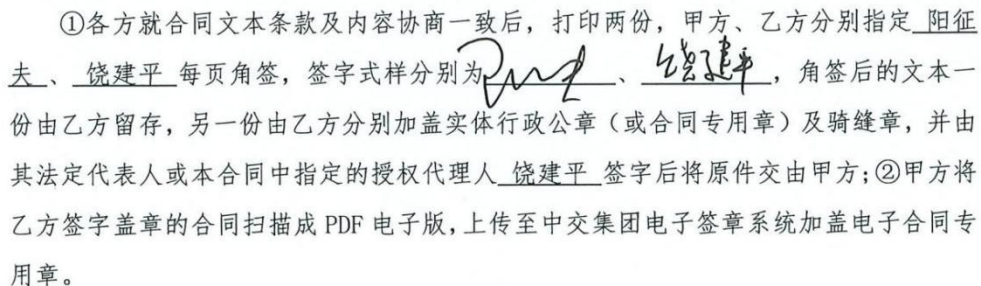 ①各方就合同文本条款及内容协商一致后，打印两份，甲方、乙方分别指定 阳征
夫 、 饶建平 每页角签，签字式样分别为 、 饶建平 ，角签后的文本一
份由乙方留存，另一份由乙方分别加盖实体行政公章（或合同专用章）及骑缝章，并由
其法定代表人或本合同中指定的授权代理人 饶建平 签字后将原件交由甲方；②甲方将
乙方签字盖章的合同扫描成 PDF 电子版，上传至中交集团电子签章系统加盖电子合同专
用章。